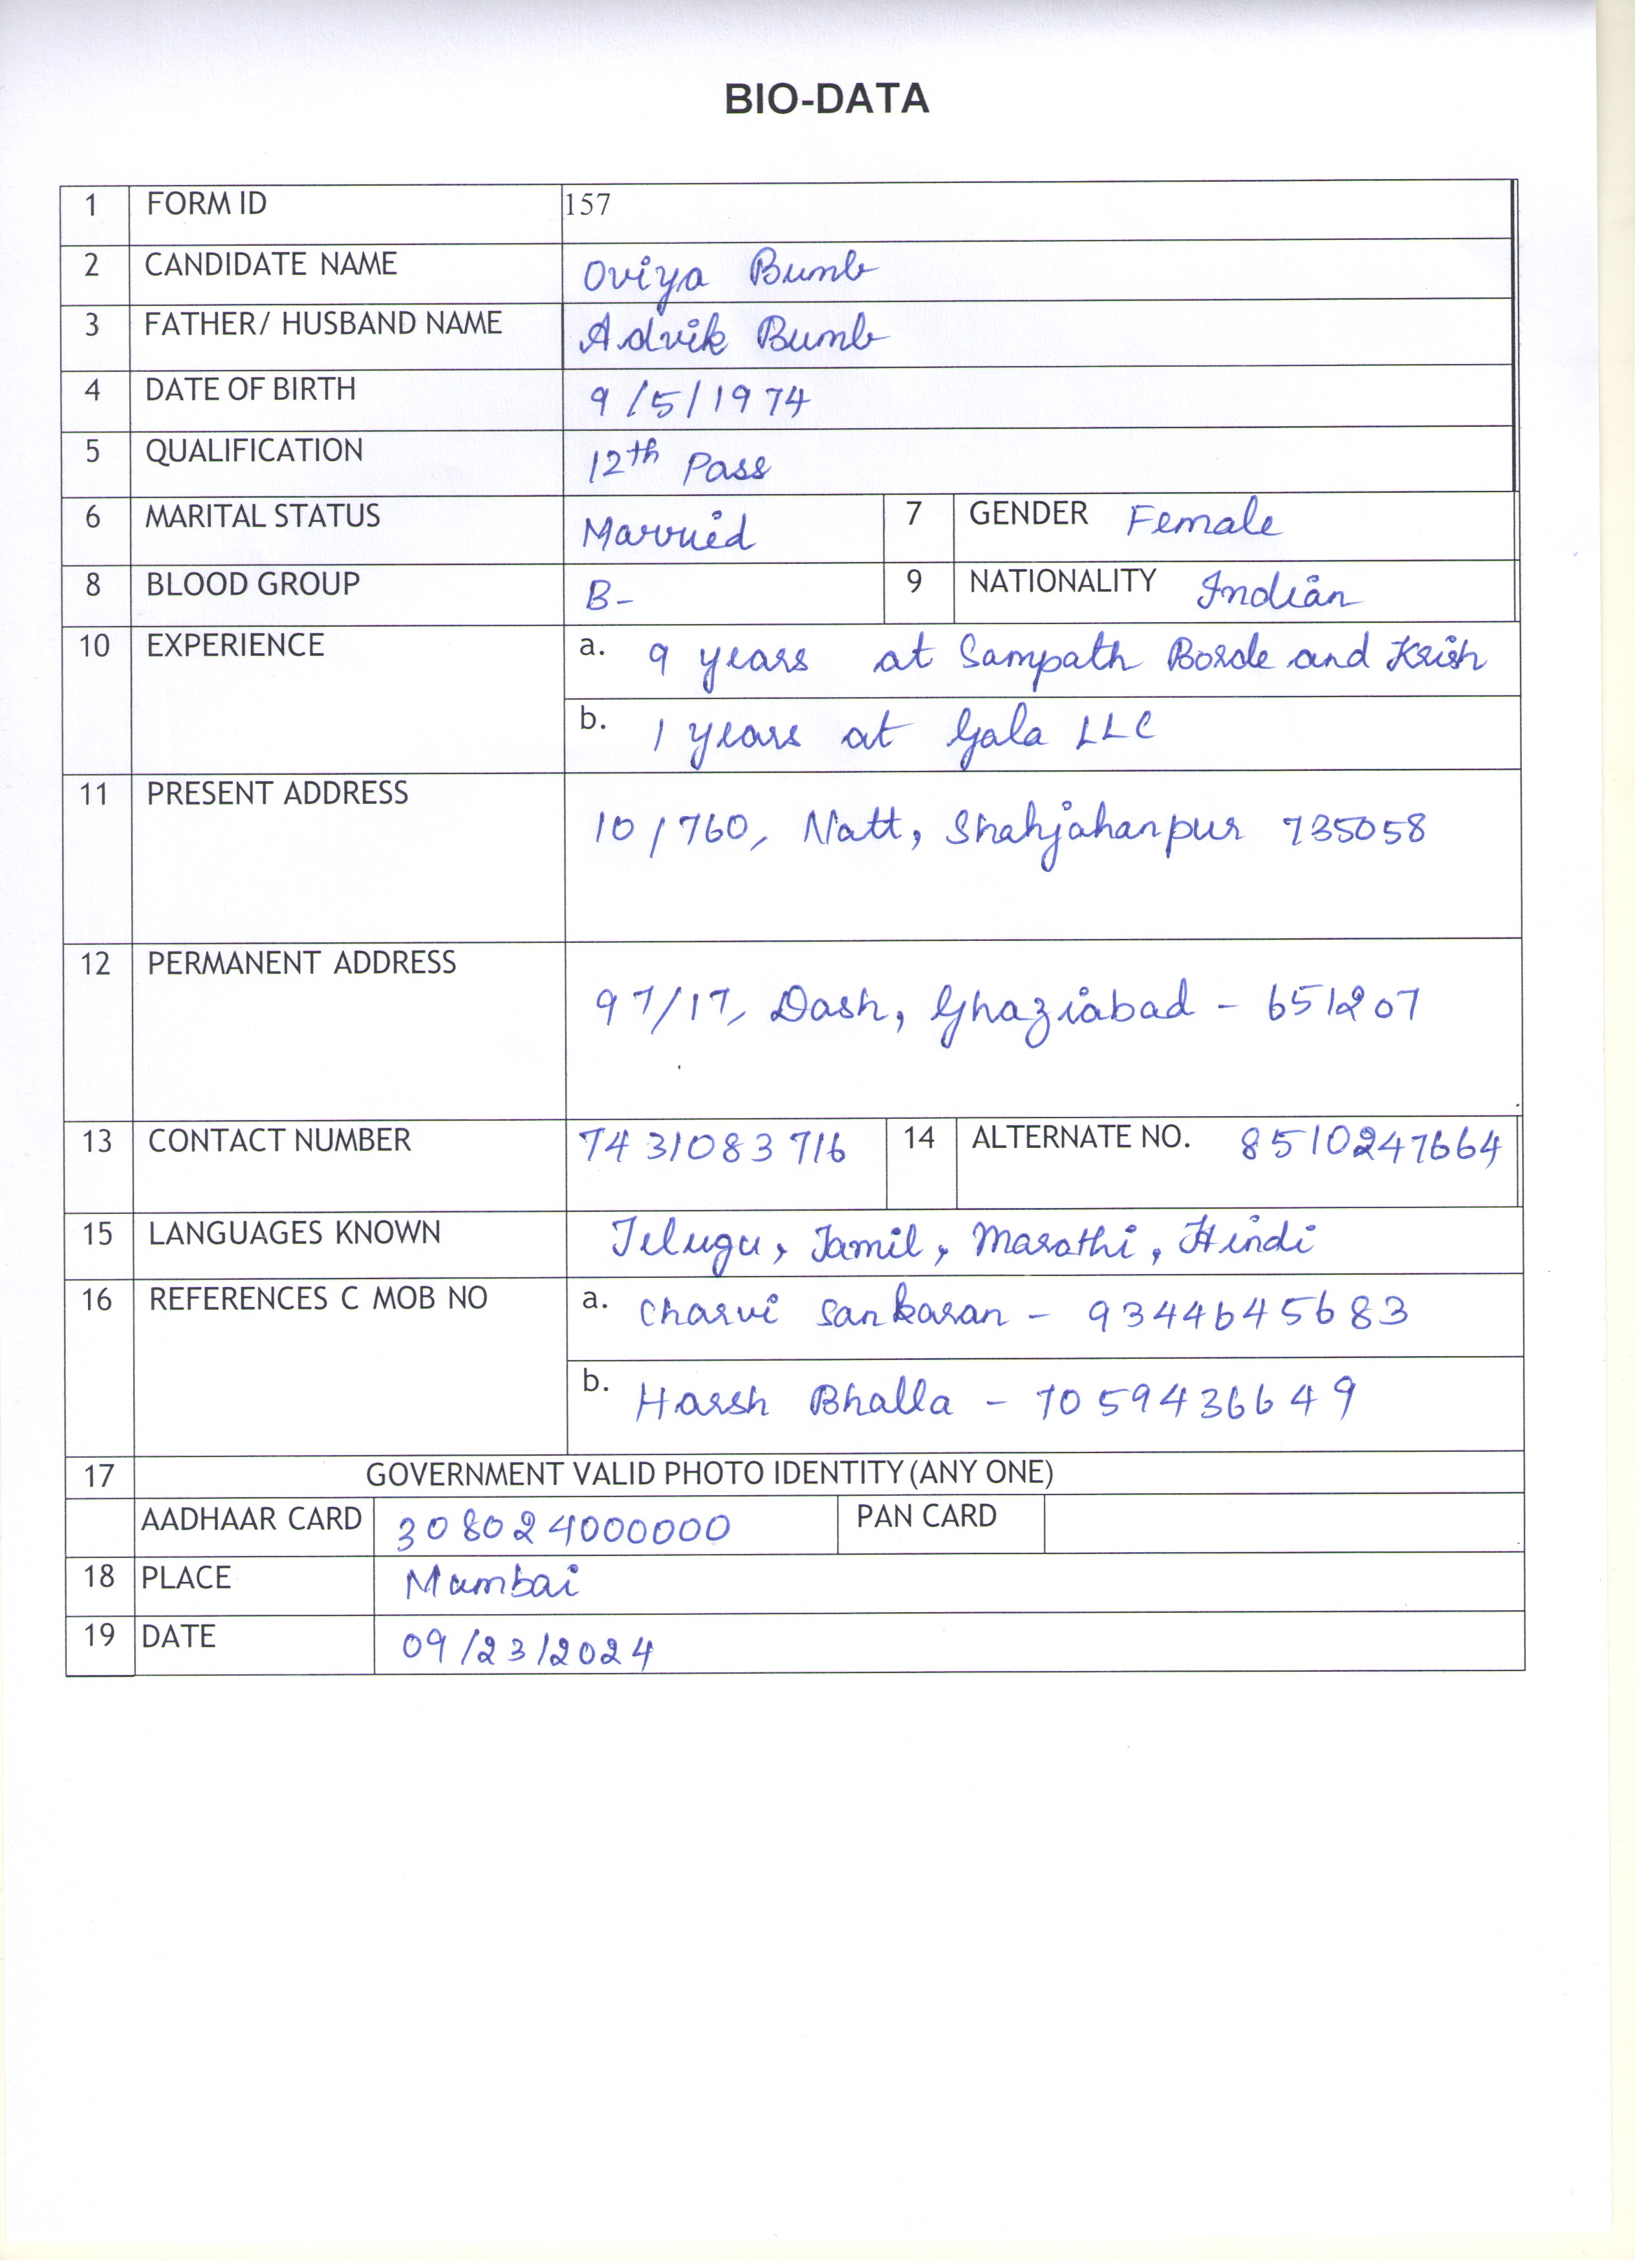 BIO-DATA
1 FORM ID 157
2 CANDIDATE NAME Oviya Bumb
3 FATHER/ HUSBAND NAME Advik Bumb
4 DATE OF BIRTH 9/5/1974
5 QUALIFICATION 12th Pass
6 MARITAL STATUS Married 7 GENDER Female
8 BLOOD GROUP B- 9 NATIONALITY Indian
10 EXPERIENCE a. 9 years at Sampath Borde and Krish
b. 1 years at Gala LLC
11 PRESENT ADDRESS
10/760, Natt, Shahjahanpur 735058
12 PERMANENT ADDRESS
97/17, Dash, Ghaziabad - 651207
13 CONTACT NUMBER 7431083716 14 ALTERNATE NO. 8510247664
15 LANGUAGES KNOWN Telugu, Tamil, Marathi, Hindi
16 REFERENCES C MOB NO a. Charvi Sankaran - 9344645683
b. Harsh Bhalla - 7059436649
17 GOVERNMENT VALID PHOTO IDENTITY (ANY ONE)
AADHAAR CARD 308024000000 PAN CARD
18 PLACE Mumbai
19 DATE 09/23/2024